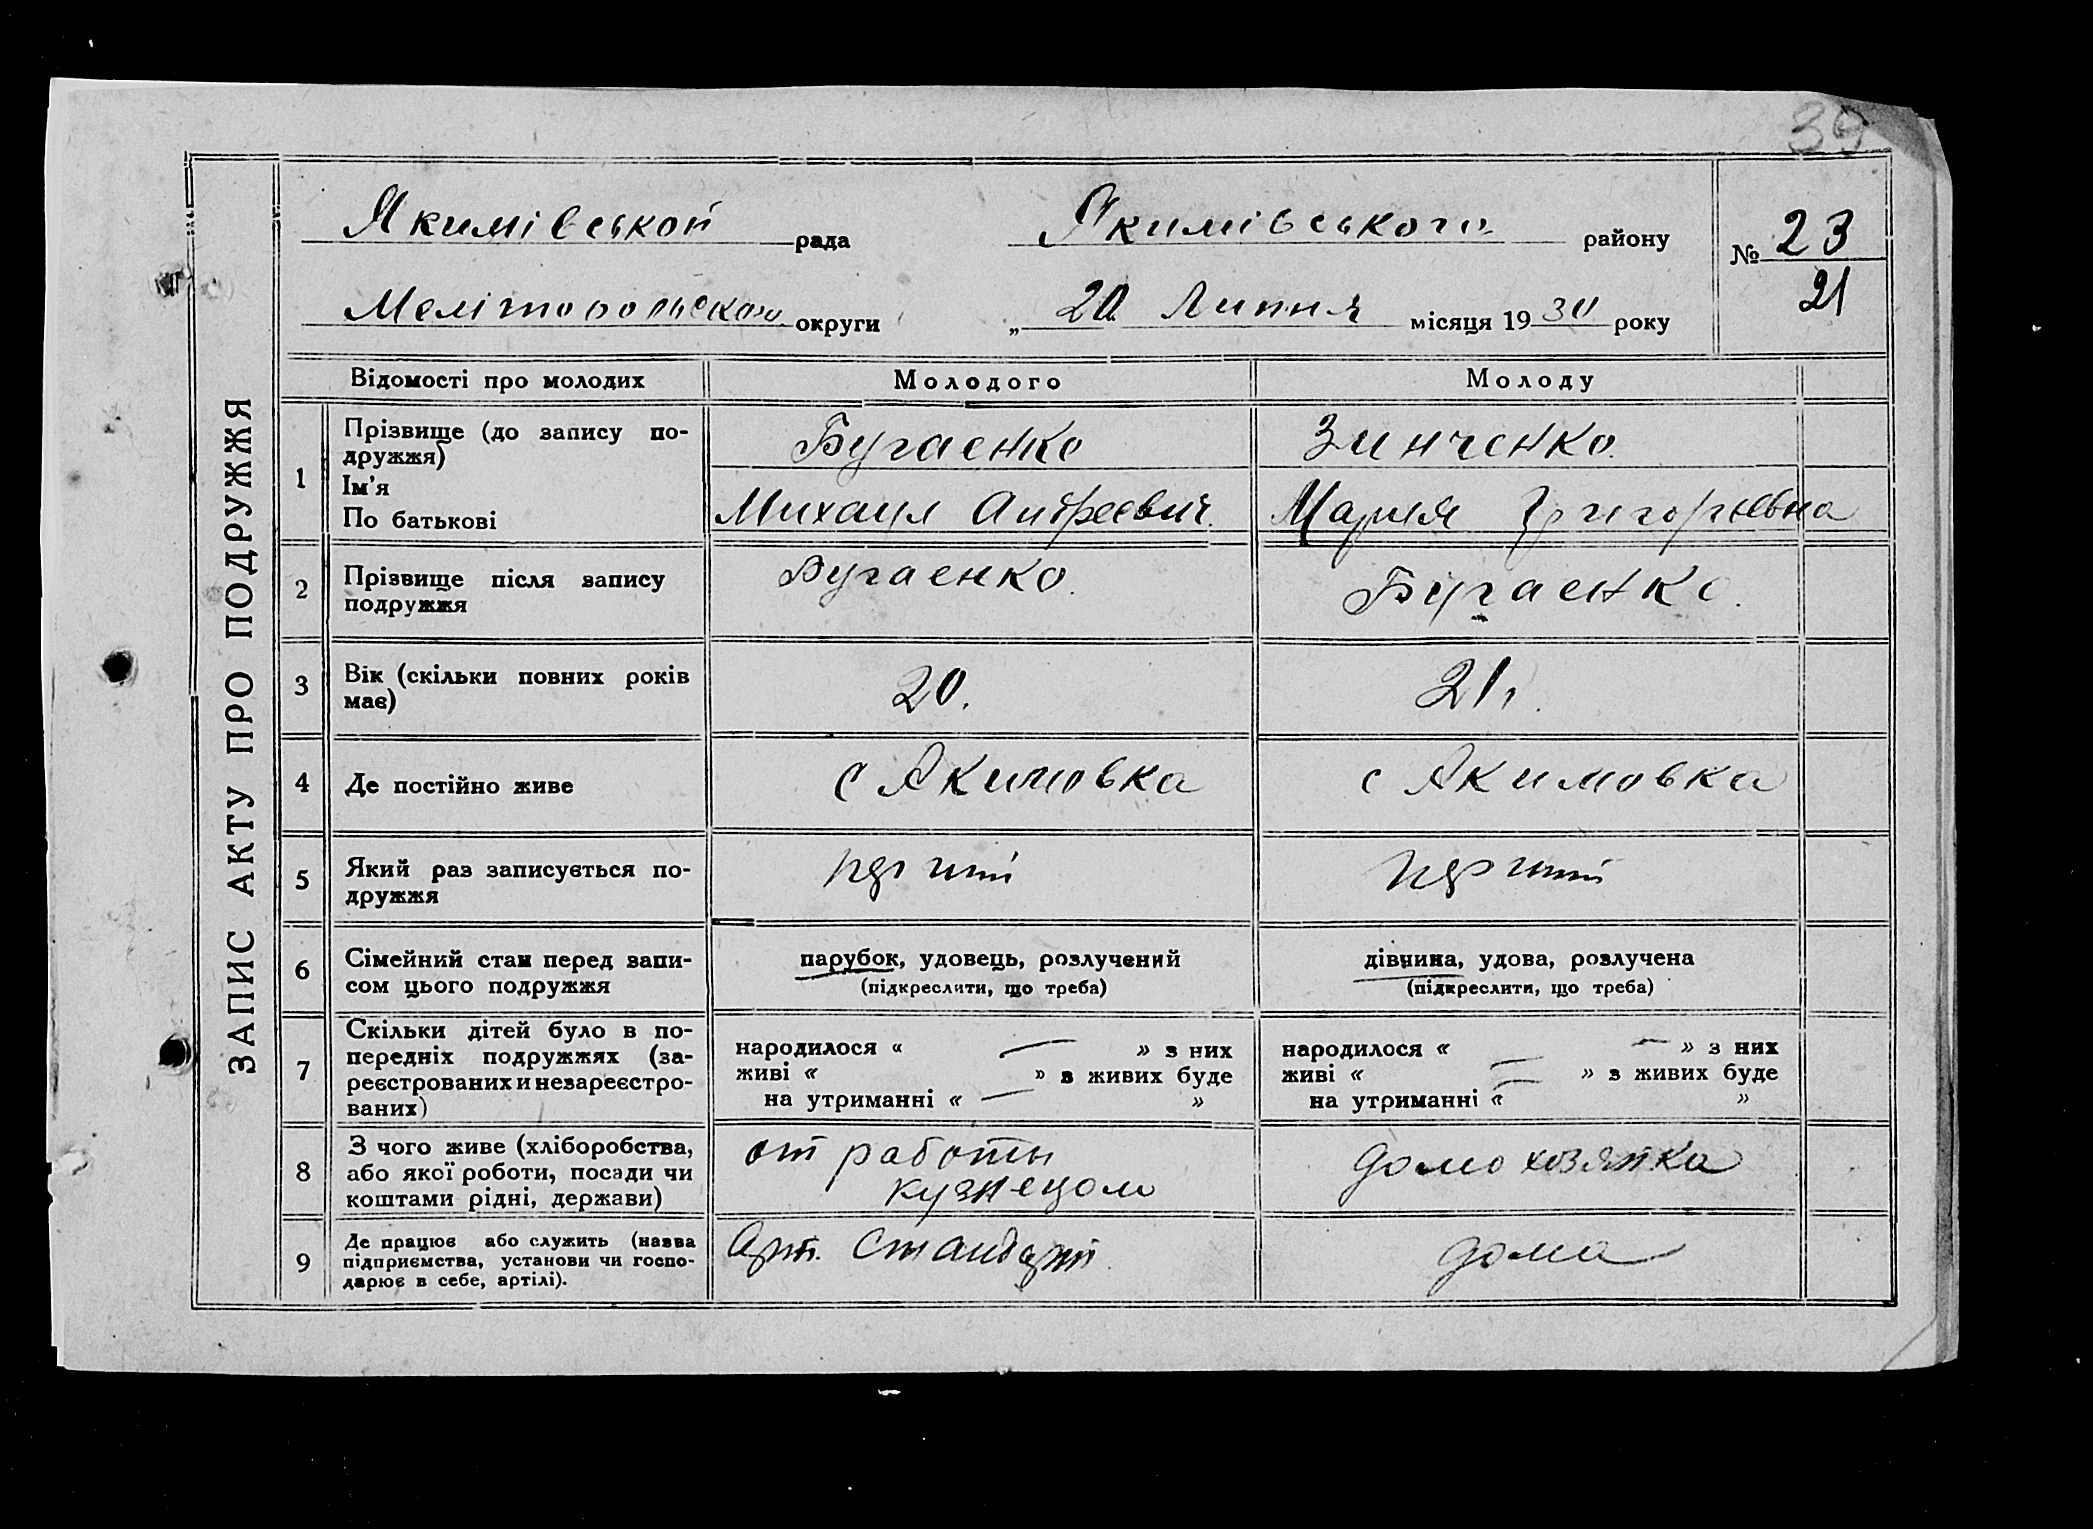 39
Якимівськой рада Якимівського району № 23
Мелітопольского округи „ 20 Липня місяця 1930 року 21
ЗАПИС АКТУ ПРО ПОДРУЖЖЯ
Відомості про молодих Молодого Молоду
1 Прізвище (до запису по-
дружжя) Бугаенко Зинченко.
Ім'я
По батькові Михаил Андреевич. Мария Григорьевна
2 Прізвище після запису
подружжя Бугаенко. Бугаенко.
3 Вік (скільки повних років
має) 20. 21.
4 Де постійно живе с Акимовка с Акимовка
5 Який раз записується по-
дружжя перший перший
6 Сімейний стан перед запи-
сом цього подружжя
парубок, удовець, розлучений
(підкреслити, що треба)
дівчина, удова, розлучена
(підкреслити, що треба)
7 Скільки дітей було в по-
передніх подружжях (за-
реєстрованих и незареєстро-
ваних)
народилося « — » з них
живі « » з живих буде
на утриманні « — »
народилося « — » з них
живі « — » з живих буде
на утриманні « — »
8 З чого живе (хліборобства,
або якої роботи, посади чи
коштами рідні, держави)
от работы
кузнецом
домохозяйка
9 Де працює або служить (назва
підприємства, установи чи госпо-
дарює в себе, артілі).
Арт. Стандарт.
дома